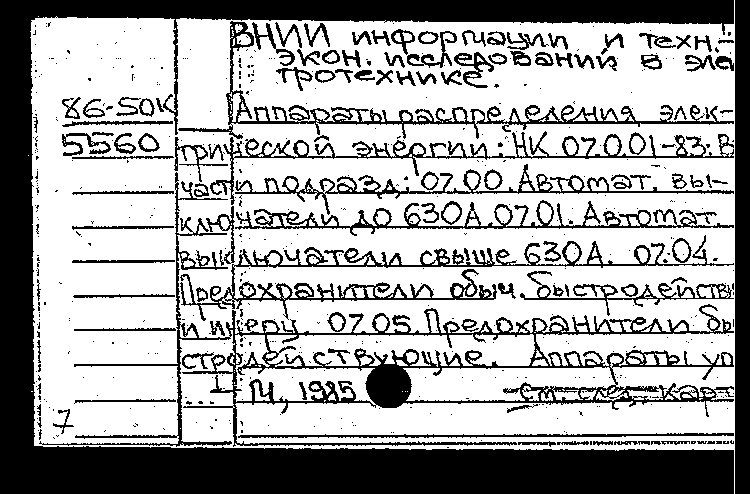 ВНИИ информации и техн.-
экон. исследований в эле
тротехнике.
86-50К Аппараты распределения элек-
5560 трической энергии: НК 07.0.01-83: В
части подразд.: 07.00. Автомат. вы-
ключатели до 630А. 07.01. Автомат.
выключатели свыше 630А. 07.04.
Предохранители обыч. быстродейств
и инерц. 07.05. Предохранители бы
стродействующие. Аппараты уп
М., 1985 см. след. карт
7